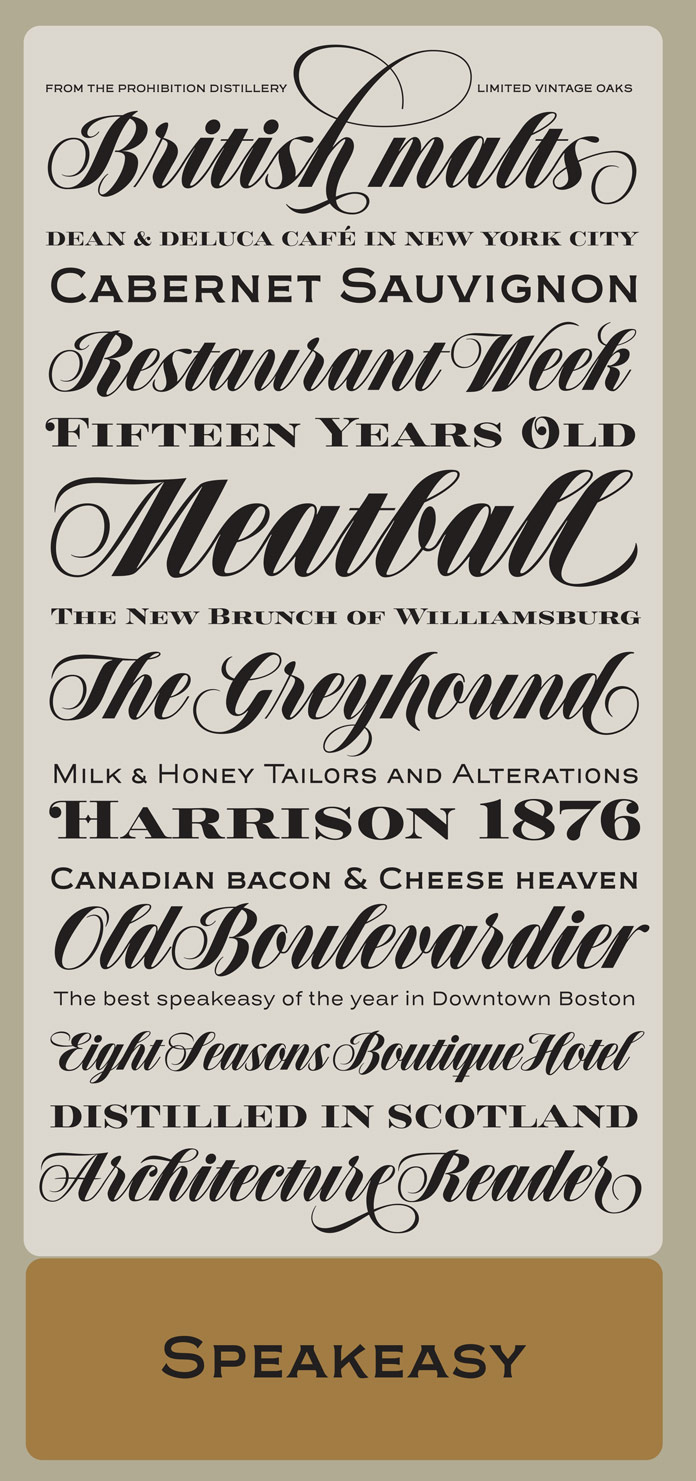 FROM THE PROHIBITION DISTILLERY LIMITED VINTAGE OAKS
British malts
DEAN & DELUCA CAFÉ IN NEW YORK CITY
CABERNET SAUVIGNON
Restaurant Week
FIFTEEN YEARS OLD
Meatball
THE NEW BRUNCH OF WILLIAMSBURG
The Greyhound
MILK & HONEY TAILORS AND ALTERATIONS
HARRISON 1876
CANADIAN BACON & CHEESE HEAVEN
Old Boulevardier
The best speakeasy of the year in Downtown Boston
Eight Seasons Boutique Hotel
DISTILLED IN SCOTLAND
Architecture Reader
SPEAKEASY